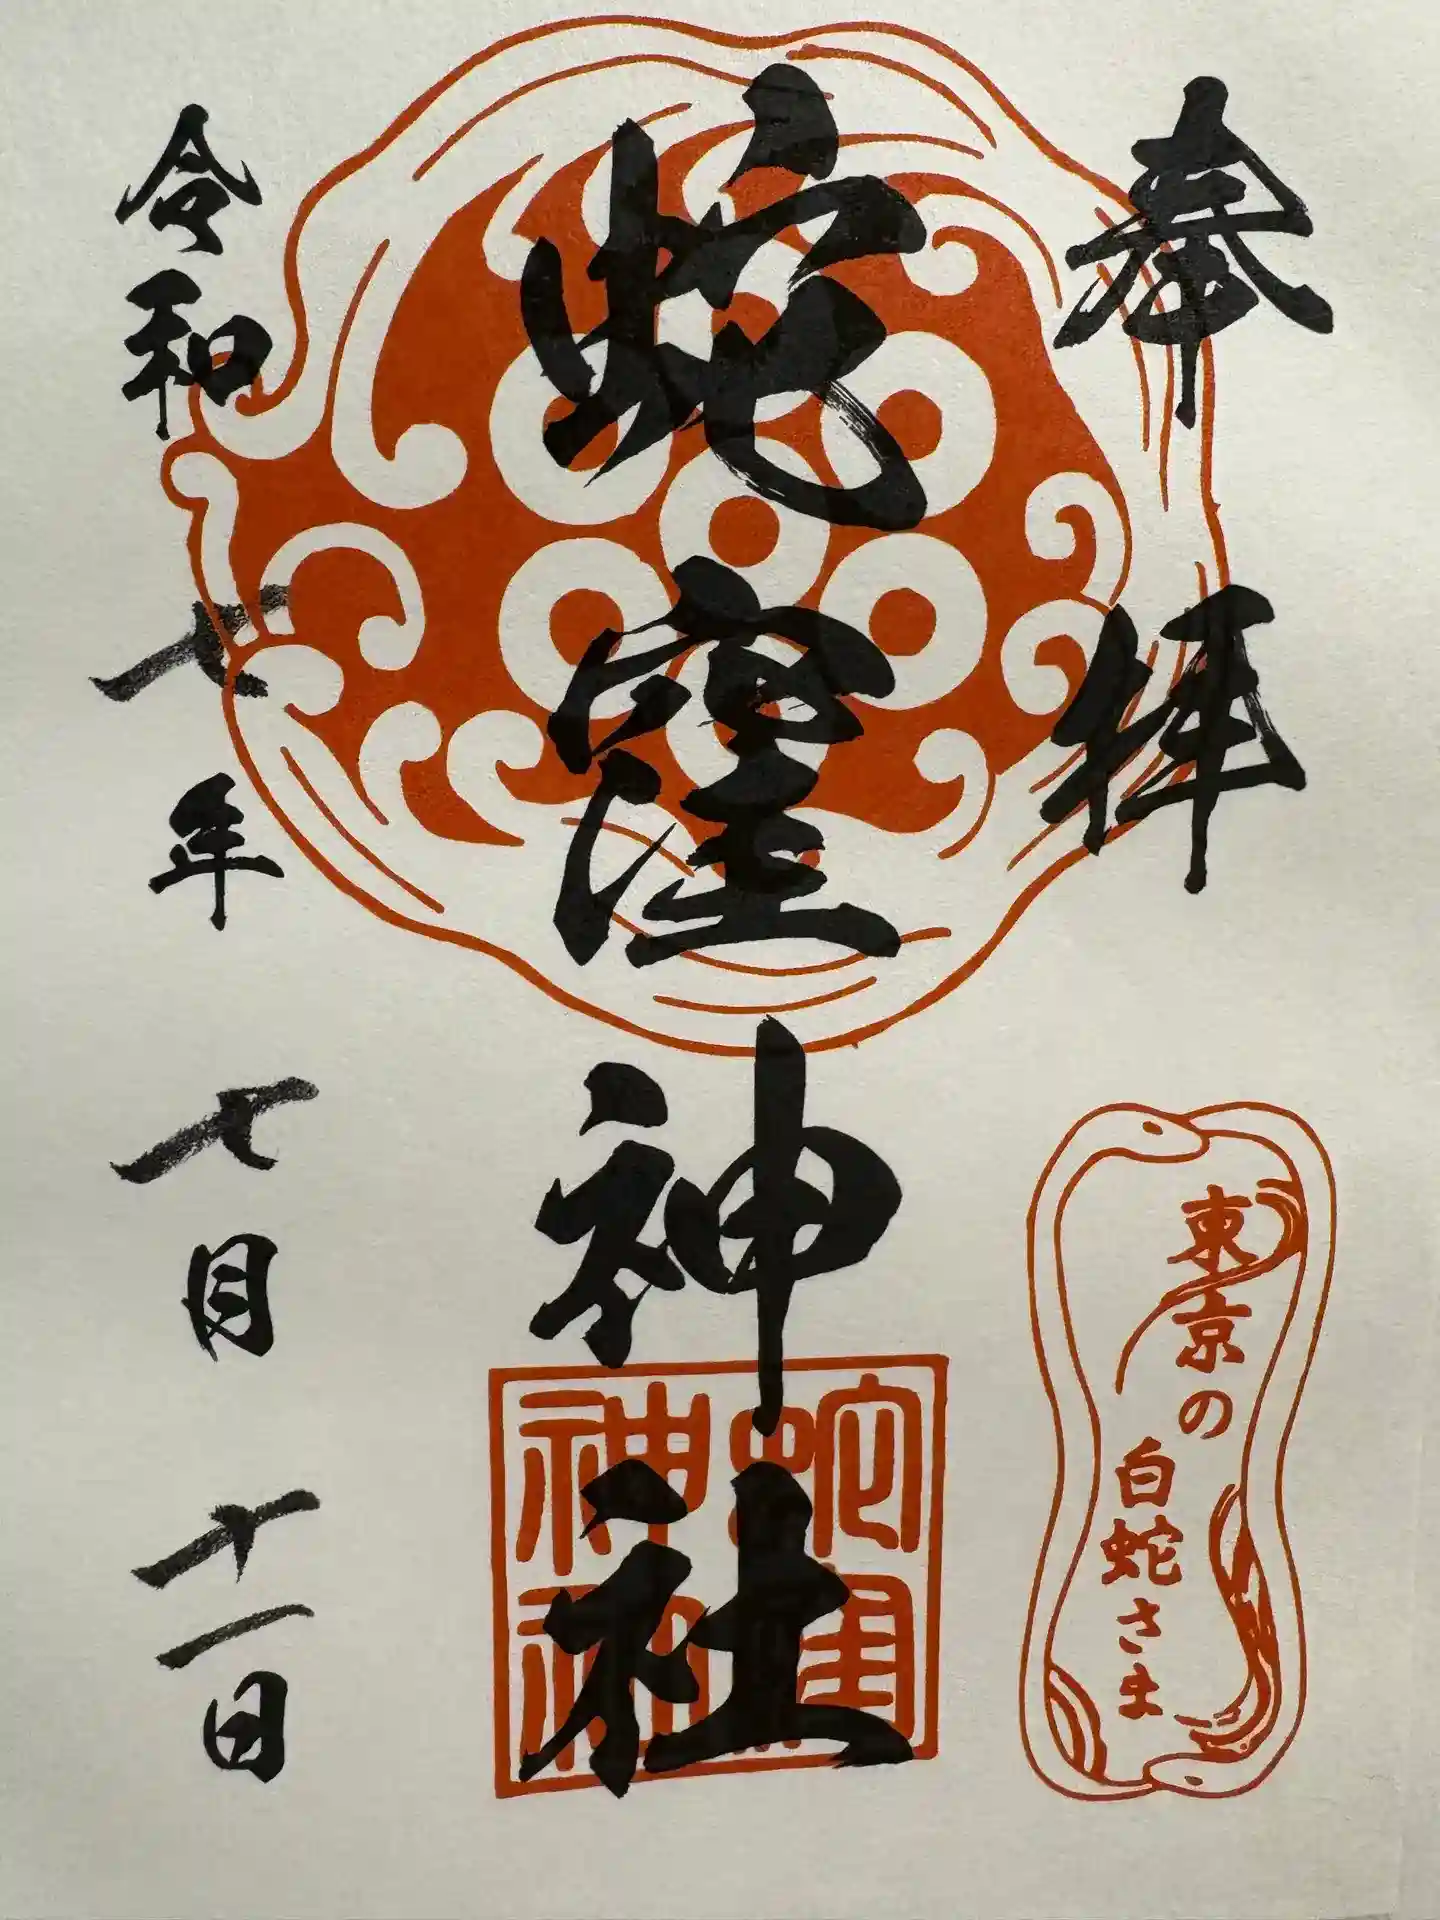 奉拝
蛇窪神社
令和七年七月十一日
東京の
白蛇さま
蛇窪
神社